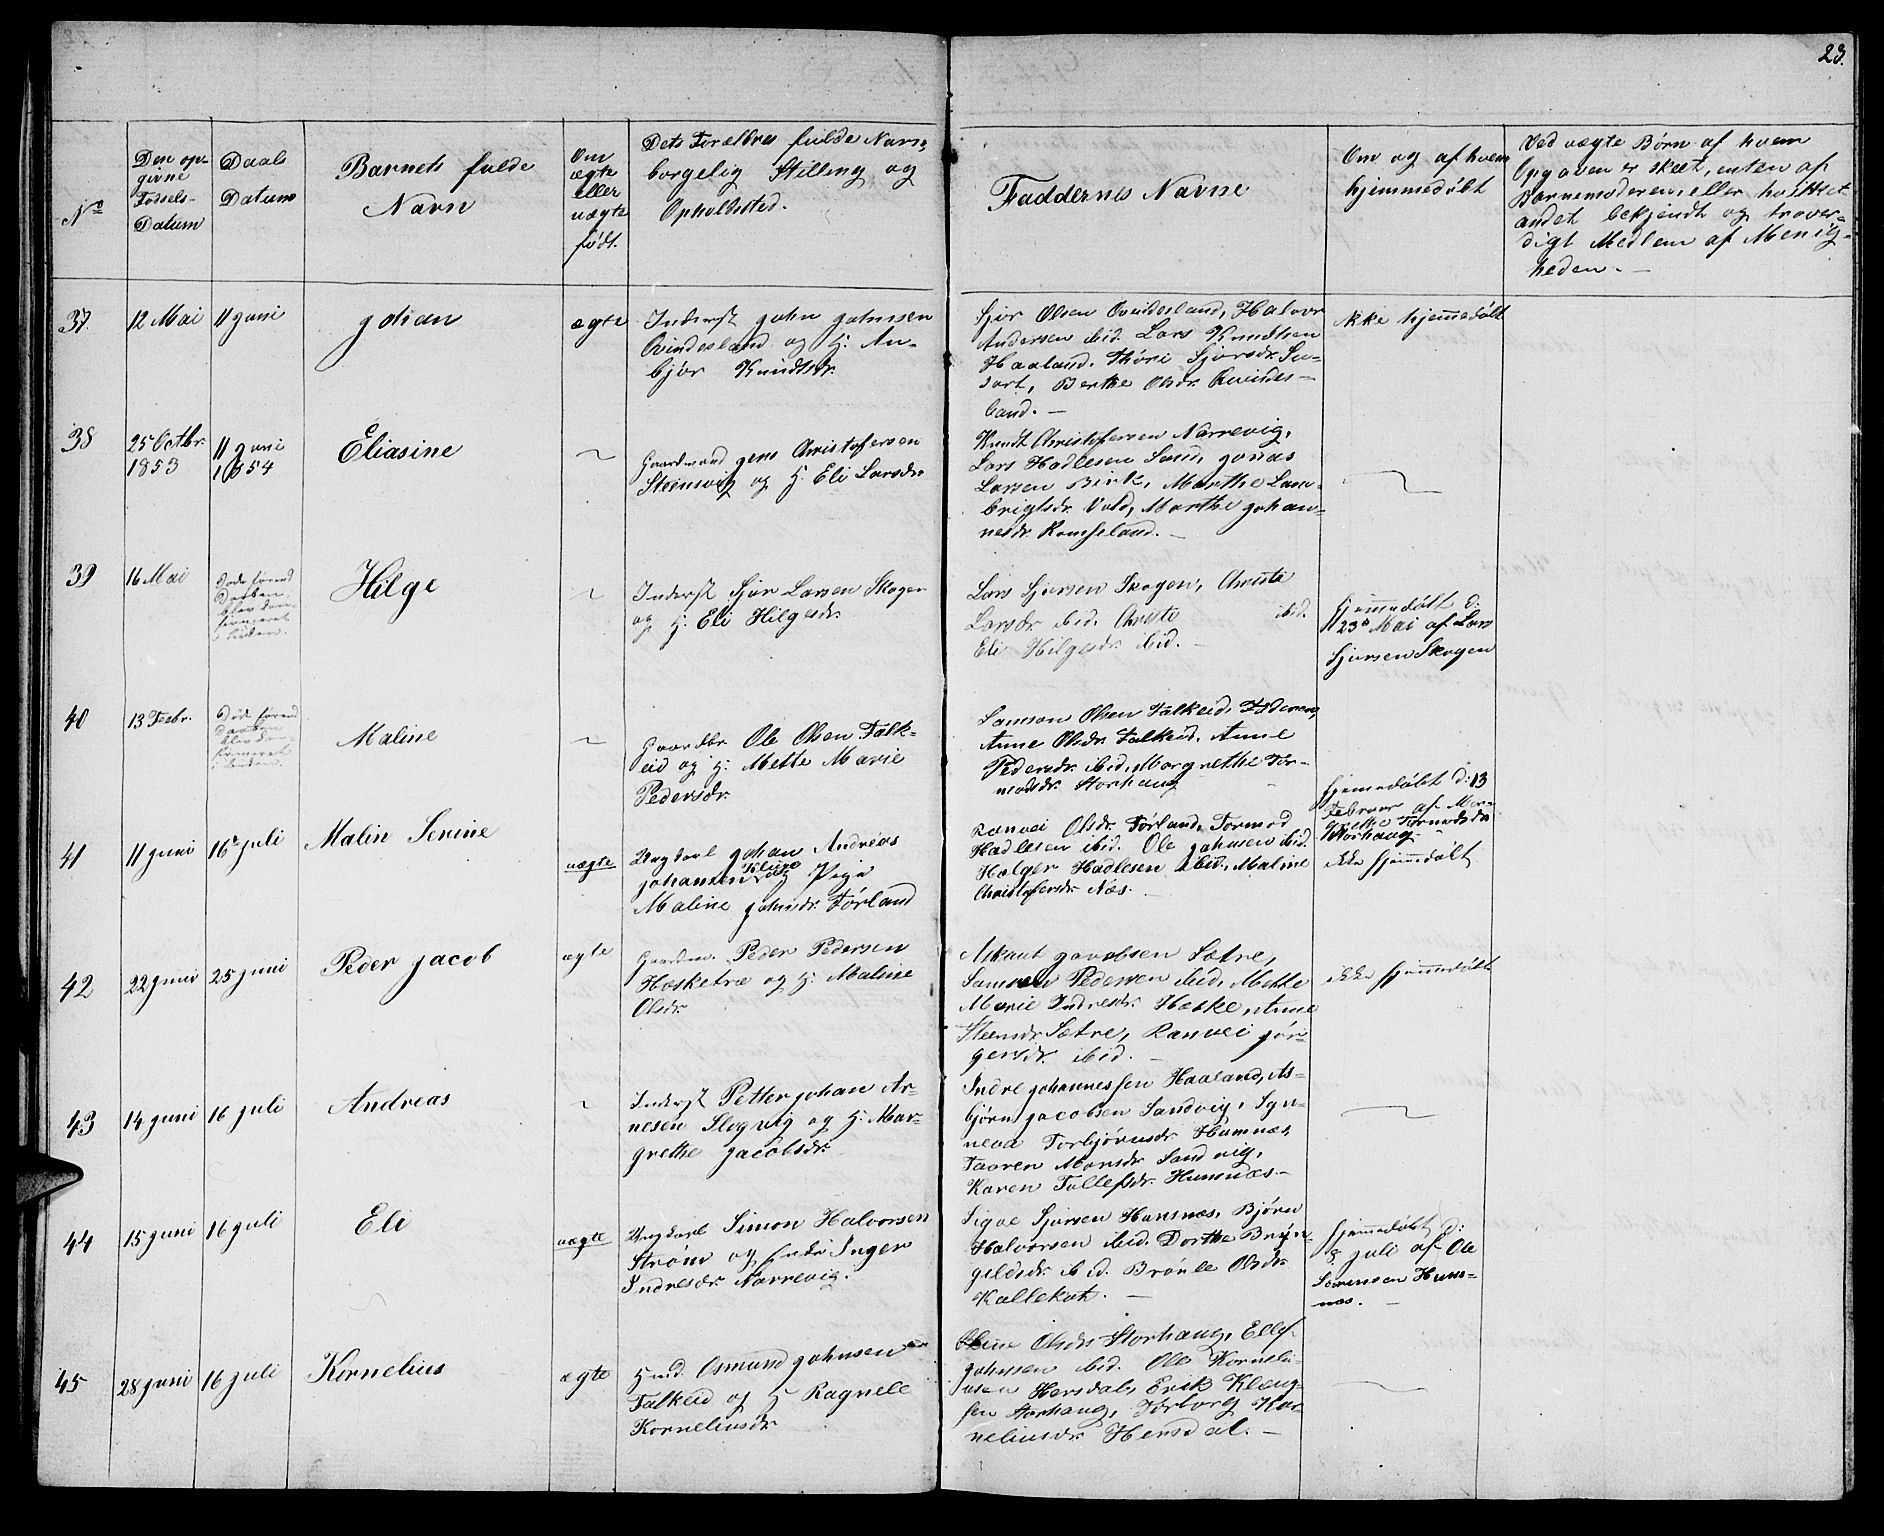 23.
No
Den op-
givne
Fødsels-
Datum
Daabs
Datum
Barnets fulde
Navn
Om
ægte
eller
uægte
født.
Dets Forældres fulde Navn,
borgelig Stilling og
Opholdssted.
Faddernes Navne
Om og af hvem
hjemmedøbt
Ved uægte Børn af hvem
Opgaven er skeet, enten af
Barnemoderen, eller
andet bekjendt og trover-
digt Medlem af Menig-
heden. -
37
12 Mai
11 juni
johan
ægte
Inderst john johnsen
Qvindesland og H. An-
bjør Knudtsdr.
Sjur Olsen Qvindesland, Halvor
Andersen ibid. Lars Knudtsen
Haaland. Thøri Sjursdr.
Berthe Olsdr. Qvindes-
land. -
ikke hjemmedøbt
38
25 Octbr.
1853
11 juni
1854
Eliasine
~
Gaardmand jens Christofersen
Steensvig og H. Eli Larsdr.
Knudt Christofersen Narrevig,
Lars Hadlesen Sund, jonas
Larsen Birk, Marthe Lam-
brigtsdr. Vold, Marthe johan-
nesdr. Ramfsland. -
39
16 Mai
Døde førend
Daaben
blev con-
firmeret
i Kirken.
Hilge
~
Inderst Sjur Larsen Skogen
og H. Eli Hilgesdr.
Lars Sjursen Skogen, Christi
Larsdr. ibid. Christi ibid.
Eli Hilgesdr. ibid. -
Hjemmedøbt d:
23de Mai af Lars
Sjursen Skogen
40
13 Febr.
Døde førend
Daaben
blev con-
firmeret
i Kirken.
Maline
~
Gaardbr. Ole Olsen Falk-
eid og H. Mette Marie
Pedersdr.
Samson Olsen Falkeid, Faderen,
Anne Olsdr. Falkeid, Anne
Pedersdr. ibid. Margrethe Tor-
modsdr. Storhaug
Hjemmedøbt d: 13
Februar af Mar-
grethe Tormodsdr.
Storhaug -
41
11 juni
16de juli
Malin Serine
uægte
Ungkarl johan Andreas
johansen Kleine og Pige
Maline johnsdr. Førland
Ranvei Olsdr. Førland, Tormod
Hadlesen ibid. Ole johnsen ibid.
Holger Hadlesen ibid. Maline
Christofersdr. Næs. -
ikke hjemmedøbt
42
22 juni
25 juni
Peder jacob
ægte
Gaardm. Peder Pedersen
Hasketræ og H. Maline
Olsdr.
Asknut jacobsen Sætre,
Samson Pedersen ibid. Mette
Marie Indresdr. Haske, Anne
Steensdr. Sætre, Ranvei jør-
gensdr. ibid. -
ikke hjemmedøbt
43
14 juni
16 juli
Andreas
~
Inderst Petter johan Ar-
nesen Slogvig og H. Mar-
grethe jacobsdr.
Indre johannessen Haaland, As-
bjørn jacobsen Sandvig, Syn-
neva Torbjørnsdr. Humnæs,
Taaren Monsdr. Sandvig,
Karen Tollefsdr. Humnæs. -
44
15 juni
16 juli
Eli
uægte
Ungkarl Simon Halvorsen
Strøm og Enke Inger
Indresdr. Narrevig.
Sigve Sjursen Humnæs, Bjørn
Halvorsen ibid. Dorthe Bryn-
gildsdr. ibid. Brønle Olsdr.
Kallekot. -
Hjemmedøbt d:
8 juli af Ole
Sørensen Hum-
næs. -
45
28 juni
16 juli
Kornelius
ægte
Hmd. Osmund johnsen
Falkeid og H. Ragnele
Korneliusdr.
Oline Olsdr. Storhaug, Ellef
johnsen ibid. Ole Korneli-
usen Hersdal, Erik Kleng-
sen Storhaug, Torborg Kor-
neliusdr. Hersdal. -